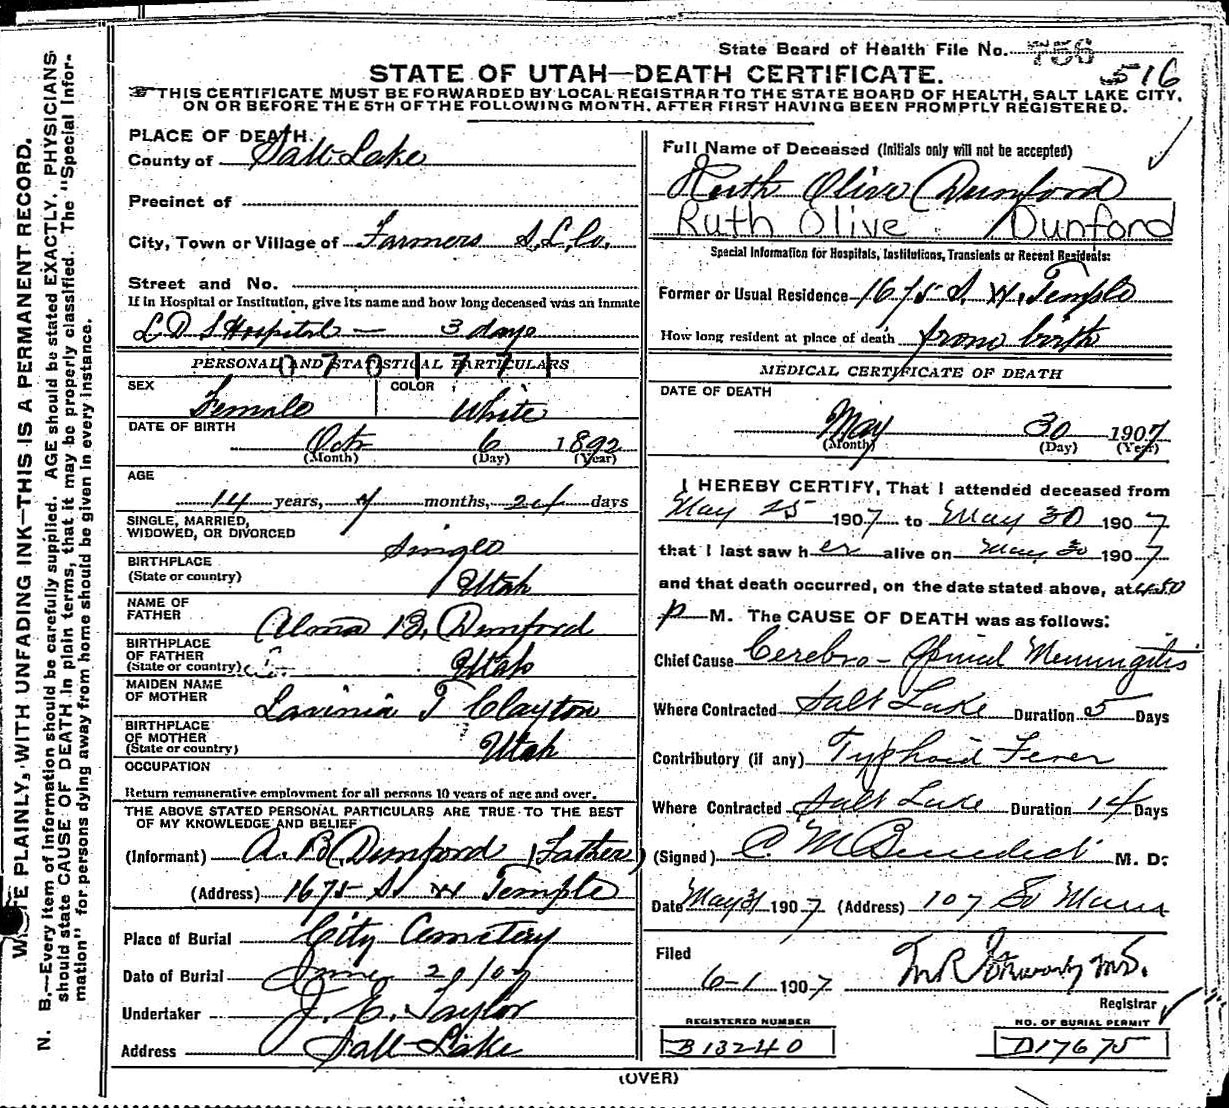 State Board of Health File No. 756
516
STATE OF UTAH—DEATH CERTIFICATE.
THIS CERTIFICATE MUST BE FORWARDED BY LOCAL REGISTRAR TO THE STATE BOARD OF HEALTH, SALT LAKE CITY,
ON OR BEFORE THE 5TH OF THE FOLLOWING MONTH, AFTER FIRST HAVING BEEN PROMPTLY REGISTERED.
WRITE PLAINLY, WITH UNFADING INK—THIS IS A PERMANENT RECORD.
N. B.—Every item of information should be carefully supplied. AGE should be stated EXACTLY. PHYSICIANS
should state CAUSE OF DEATH in plain terms, that it may be properly classified. The "Special Infor-
mation" for persons dying away from home should be given in every instance.
PLACE OF DEATH.
County of Salt Lake
Precinct of
City, Town or Village of Farmers S.L.Co.
Street and No.
If in Hospital or Institution, give its name and how long deceased was an inmate
L D S Hospital — 3 days
PERSONAL AND STATISTICAL PARTICULARS
0 7 0 1 7 7 1
SEX Female COLOR White
DATE OF BIRTH
Oct 6 1892
(Month) (Day) (Year)
AGE
14 years, 7 months, 24 days
SINGLE, MARRIED,
WIDOWED, OR DIVORCED Single
BIRTHPLACE
(State or country) Utah
NAME OF
FATHER Alma B. Dunford
BIRTHPLACE
OF FATHER
(State or country) Utah
MAIDEN NAME
OF MOTHER Lavinia T Clayton
BIRTHPLACE
OF MOTHER
(State or country) Utah
OCCUPATION
Return remunerative employment for all persons 10 years of age and over.
THE ABOVE STATED PERSONAL PARTICULARS ARE TRUE TO THE BEST
OF MY KNOWLEDGE AND BELIEF
(Informant) A. B. Dunford (Father)
(Address) 1675 So W Temple
Place of Burial City Cemetery
Date of Burial June 2 0/07
Undertaker J. E. Taylor
Address Salt Lake
Full Name of Deceased (Initials only will not be accepted)
Ruth Olive Dunford
RUTH OLIVE DUNFORD
Special Information for Hospitals, Institutions, Transients or Recent Residents:
Former or Usual Residence 1675 S. W. Temple
How long resident at place of death from birth
MEDICAL CERTIFICATE OF DEATH
DATE OF DEATH
May 30 1907
(Month) (Day) (Year)
I HEREBY CERTIFY, That I attended deceased from
May 25 1907 to May 30 1907
that I last saw her alive on May 30 1907
and that death occurred, on the date stated above, at
P M. The CAUSE OF DEATH was as follows:
Chief Cause Cerebro-Spinal Meningitis
Where Contracted Salt Lake Duration 5 Days
Contributory (if any) Typhoid Fever
Where Contracted Salt Lake Duration 14 Days
(Signed) C. M. Benedict M. D.
Date May 31 1907 (Address) 107 So Main
Filed
6-1 1907
Registrar
REGISTERED NUMBER
B13240
NO. OF BURIAL PERMIT
D17675
(OVER)